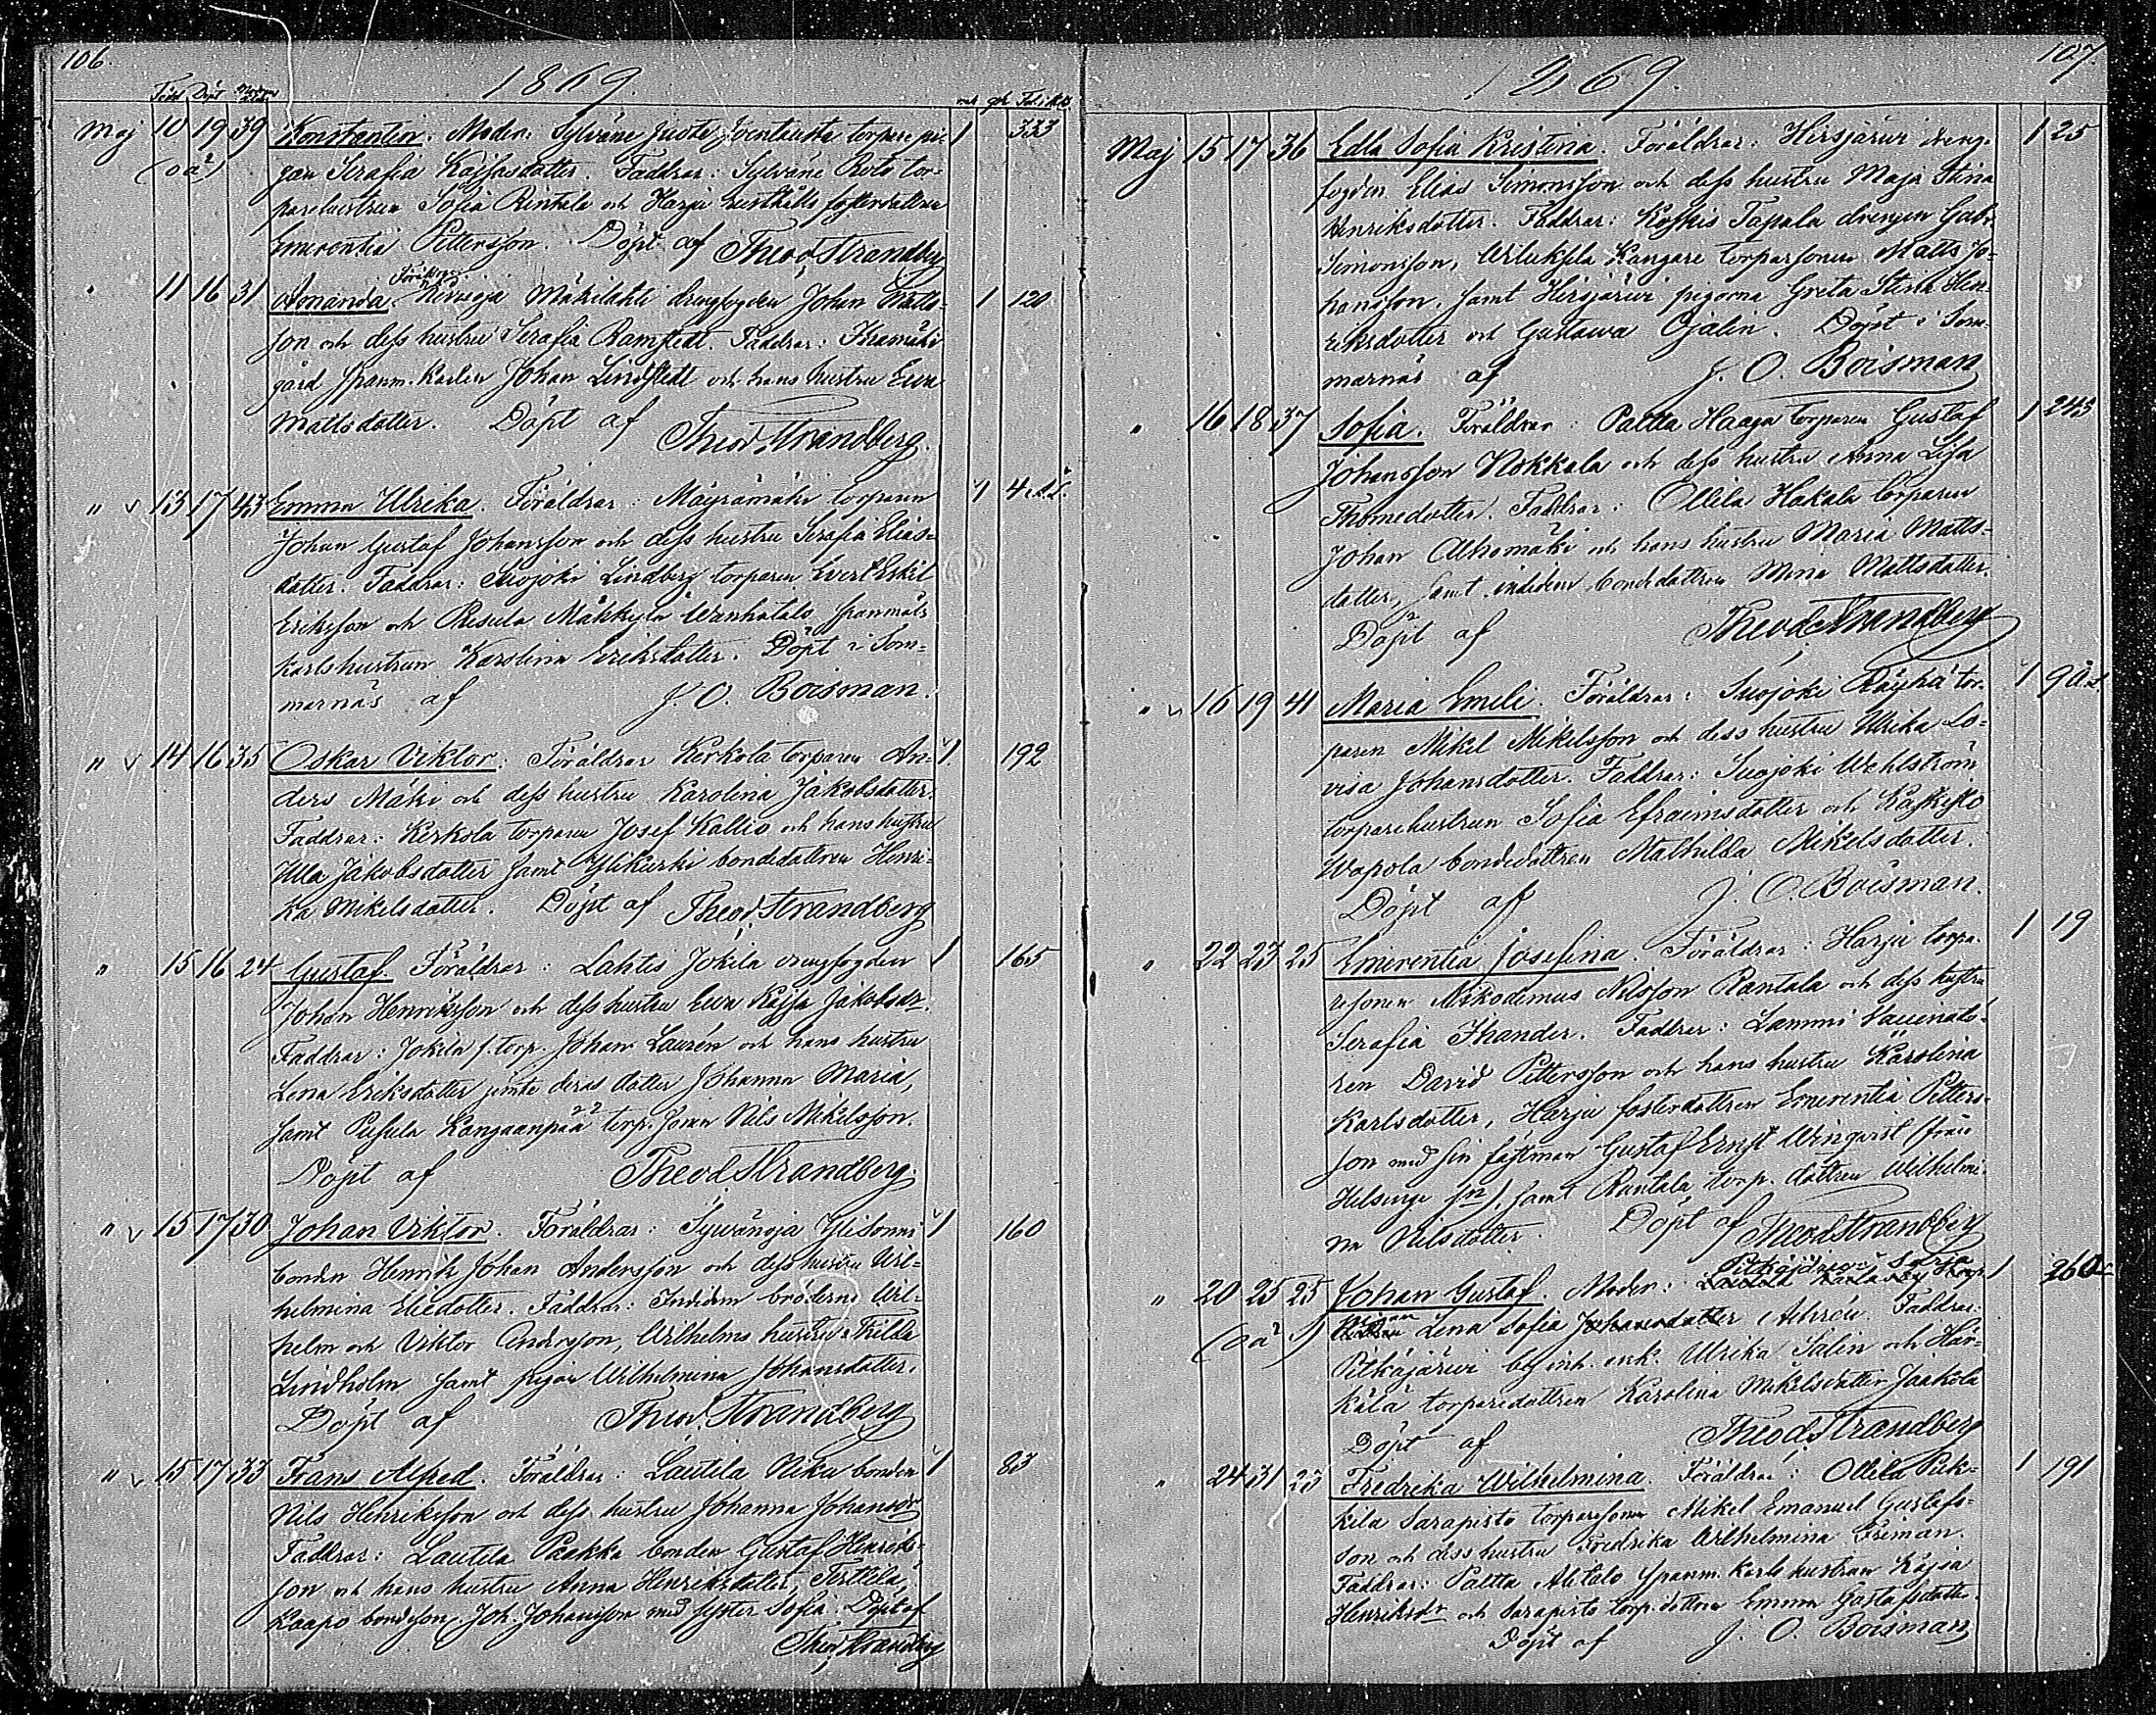 106.
1869.
Född Döpt Moderns ålder
Maj 10 19 39 Konstantin. Moder: Sylväne torpare pi- 1 333
(oä) gan Serafia Kaijsasdotter. Faddrar: Sylväne Roto tor-
parehustrun Sofia Rintala och Harju fosterdottren
Emerentia Pettersson. Döpt af Theod Strandberg
11 16 31 Amanda. Föräldrar: Mäkilahti drengfogden Johan Matts- 1 120
son och dess hustru Serafia Ramstedt. Faddrar:
gård spanm. karlen Johan Lindstedt och hans hustru Eva
Mattsdotter. Döpt af Theod. Strandberg.
" v 13 17 43 Emma Ulrika. Föräldrar: Mäyrämäki torparen 1 4
Johan Gustaf Johansson och dess hustru Serafia Elias-
dotter. Faddrar: Suojoki Lindberg torparen Evert Eskil
Eriksson och Resula Mäkkylä Wanhatalo spanmåls
karlshustrun Karolina Eriksdotter. Döpt i Som-
marnäs af J. O. Boisman.
" v 14 16 35 Oskar Viktor. Föräldrar Kerkola torparen An- 1 192
ders Mäki och dess hustru Karolina Jakobsdotter.
Faddrar: Kerkola torparen Josef Kallio och hans hustru
Ulla Jakobsdotter samt Ylikurki bondedottren Henri-
ka Mikelsdotter. Döpt af Theod. Strandberg
" 15 16 24 Gustaf. Föräldrar: Lahtis Jokila drengfogden 1 165
Johan Henriksson och dess hustru Eva Kajsa Jakobsdr.
Faddrar: Jokila s. torp. Johan Laurén och hans hustru
Lena Eriksdotter jemte deras dotter Johanna Maria,
samt Pusula Kangaanpää torp. sonen Nils Mikelsson.
Döpt af Theod Strandberg.
" v 15 17 30 Johan Viktor. Föräldrar: Syvänoja Ylisonni 1 160
bonden Henrik Johan Andersson och dess hustru Wil-
helmina Eliedotter. Faddrar: Indidem bröderne Wil-
helm och Viktor Andersson, Wilhelms hustru Thilda
Lindholm samt pigan Wilhelmina Johansdotter.
Döpt af Theod. Strandberg
" v 15 17 33 Frans Alfred. Föräldrar: Lautela Nika bonden 1 83
Nils Henriksson och dess hustru Johanna Johansdr
Faddrar: Lautela Paakka bonden Gustaf Henriks-
son och hans hustru Anna Henriksdotter, Terttilä,
Kaapo bondeson Joh. Johansson med syster Sofia. Döpt af
Theod. Strandberg
107.
1869.
Maj 15 17 36 Edla Sofia Kristina. Föräldrar: Hirsjärwi dreng- 1 25
fogden Elias Simonsson och dess hustru Maja Stina
Henriksdotter. Faddrar: Koskis Tapala drengen Gabr.
Simonsson, Wiluksela Kangare torparsonen Matts Jo-
hansson, samt Hirsjärwi pigorna Greta Stina Hen-
riksdotter och Gustawa Ojalin. Döpt i Som-
marnäs af J. O. Boisman
" 16 18 37 Sofia. Föräldrar: Paltta Haaga torparen Gustaf 1 243
Johansson Nokkala och dess hustru Anna Lisa
Thomedotter. Faddrar: Ollila Hakala torparen
Johan Alhomäki och hans hustru Maria Matts-
dotter, samt indidem bondedottren Mina Mattsdotter.
Döpt af Theod. Strandberg
" v 16 19 41 Maria Emili. Föräldrar: Suojoki Räyhä tor- 1 9
paren Mikel Mikelsson och dess hustru Ulrika Lo-
visa Johansdotter. Faddrar: Suojoki Wahlström
torparehustrun Sofia Efraimsdotter och Kaskisto
Wapola bondedottren Mathilda Mikelsdotter.
Döpt af J. O. Boisman.
" 22 23 25 Emerentia Josefina. Föräldrar: Harju torpa- 1 19
resonen Nikodemus Nilsson Rantala och dess hustru
Serafia Thander. Faddrar: Lammi
ren David Pettersson och hans hustru Karolina
Karlsdotter, Harju fosterdottren Emerentia Petters-
son med sin fästman Gustaf Ernst Winqvist (från
Helsinge sn), samt Rantala torp. dottren Wilhelmi-
na Nilsdotter. Döpt af Theod Strandberg
" 20 25 25 Johan Gustaf. Moder: Pitkäjärwi 1 260
(oä) pigan Lena Sofia Johansdotter Ahrén. Faddrar:
Pitkäjärwi bef. inh. enk. Ulrika Salin och Här-
kälä torparedottren Karolina Mikelsdotter Jaakola
Döpt af Theod. Strandberg
" 24 31 23 Fredrika Wilhelmina. Föräldrar: Ollila Pirk- 1 191
kilä Sarapisto torparsonen Mikel Emanuel Gustafs-
son och dess hustru Fredrika Wilhelmina Friman.
Faddrar: Paltta Alitalo spanm. karls hustrun Kajsa
Henriksdr och Sarapisto torp. dottren Emma Gustafsdotter.
Döpt af J. O. Boisman